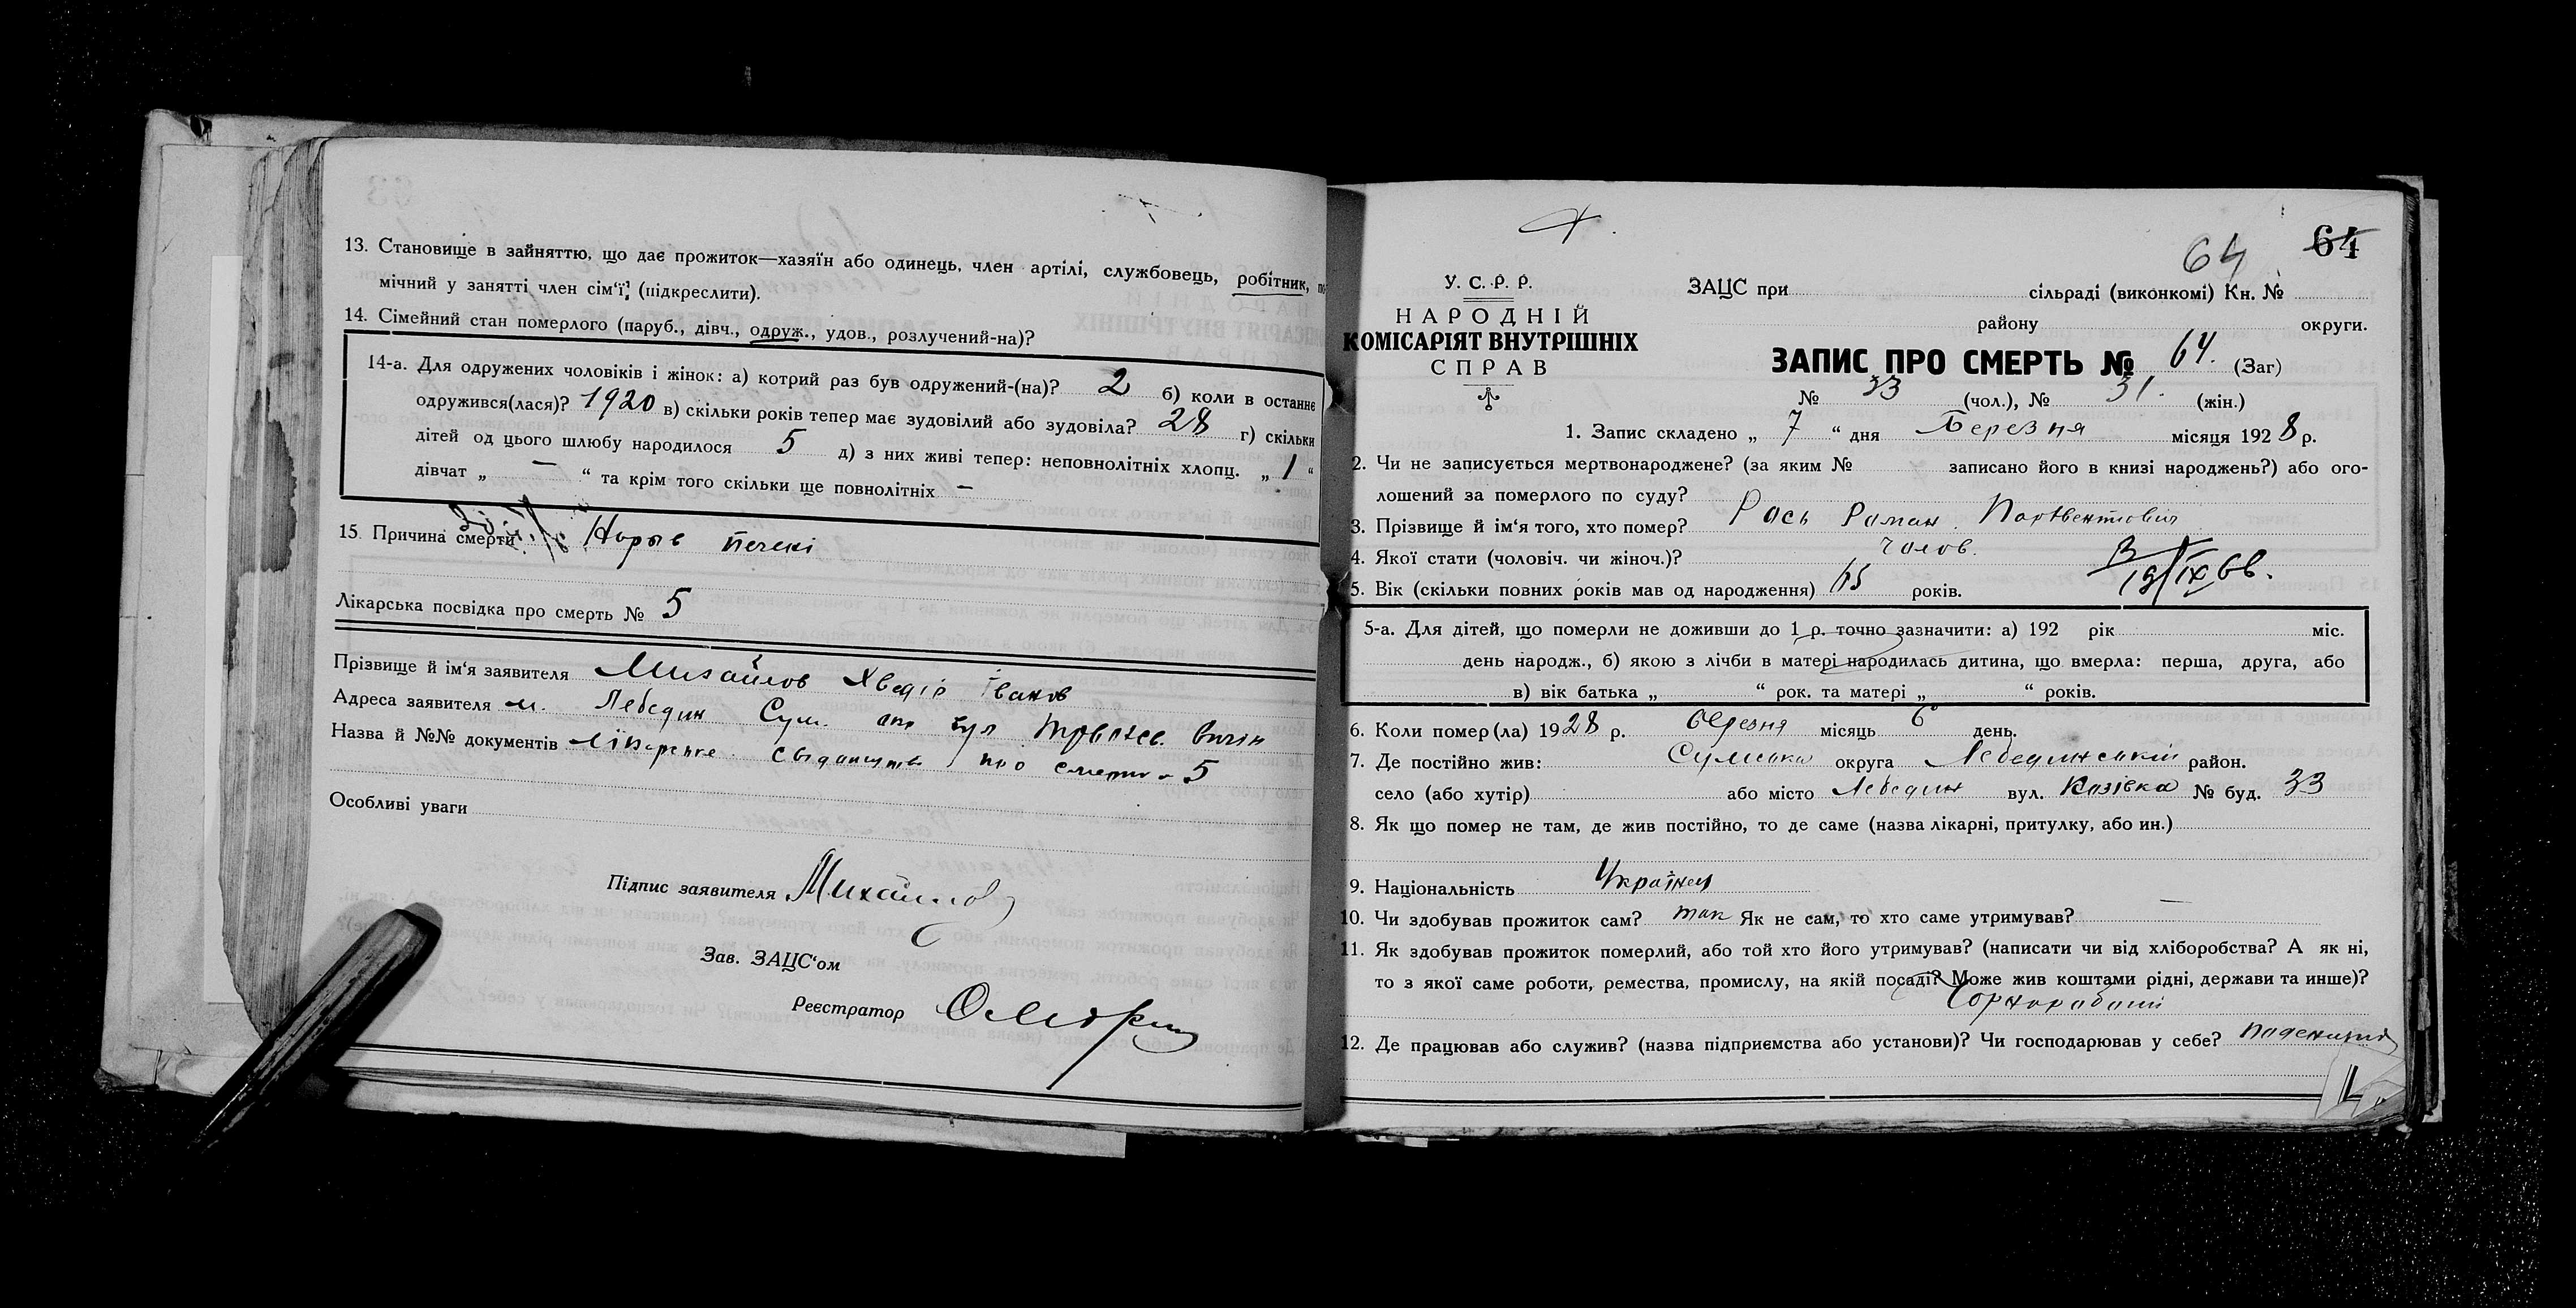 13. Становище в зайняттю, що дає прожиток—хазяїн або одинець, член артілі, службовець, робітник, по-
мічний у занятті член сім'ї (підкреслити).
14. Сімейний стан померлого (паруб., дівч., одруж., удов., розлучений-на)?
14-а. Для одружених чоловіків і жінок: а) котрий раз був одружений-(на)? 2 б) коли в останнє
одружився(лася)? 1920 в) скільки років тепер має зудовілий або зудовіла? 28 г) скільки
дітей од цього шлюбу народилося 5 д) з них живі тепер: неповнолітніх хлопц. „ 1 “
дівчат „ — “ та крім того скільки ще повнолітніх —
15. Причина смерти Нарыв печені
Лікарська посвідка про смерть № 5
Прізвище й ім'я заявителя Михайлов Хведір Іванов
Адреса заявителя м. Лебедин Сум. вул
Назва й №№ документів про смерть 5
Особливі уваги
Підпис заявителя Михайлов
Зав. ЗАЦС'ом
Реєстратор
64 64
У. С. Р. Р.
НАРОДНІЙ
КОМІСАРІЯТ ВНУТРІШНІХ
СПРАВ
ЗАЦС при сільраді (виконкомі) Кн. №
району округи.
ЗАПИС ПРО СМЕРТЬ № 64. (Заг)
№ 33 (чол.), № 31. (жін.)
1. Запис складено „ 7 “ дня Березня місяця 1928 р.
2. Чи не записується мертвонароджене? (за яким № записано його в книзі народжень?) або ого-
лошений за померлого по суду?
3. Прізвище й ім'я того, хто помер? Рось Роман Парфентієвич
4. Якої стати (чоловіч. чи жіноч.)? чолов.
5. Вік (скільки повних років мав од народження) 65 років.
5-а. Для дітей, що померли не доживши до 1 р. точно зазначити: а) 192 рік міс.
день народж., б) якою з лічби в матері народилась дитина, що вмерла: перша, друга, або
в) вік батька „ “ рок. та матері „ “ років.
6. Коли помер(ла) 1928 р. березня місяць 6 день.
7. Де постійно жив: Сумська округа Лебединський район.
село (або хутір) або місто Лебедин вул. Казівка № буд. 33
8. Як що помер не там, де жив постійно, то де саме (назва лікарні, притулку, або ин.)
9. Національність Українец
10. Чи здобував прожиток сам? так Як не сам, то хто саме утримував? —
11. Як здобував прожиток померлий, або той хто його утримував? (написати чи від хліборобства? А як ні,
то з якої саме роботи, ремества, промислу, на якій посаді? Може жив коштами рідні, держави та инше)?
12. Де працював або служив? (назва підприємства або установи)? Чи господарював у себе?